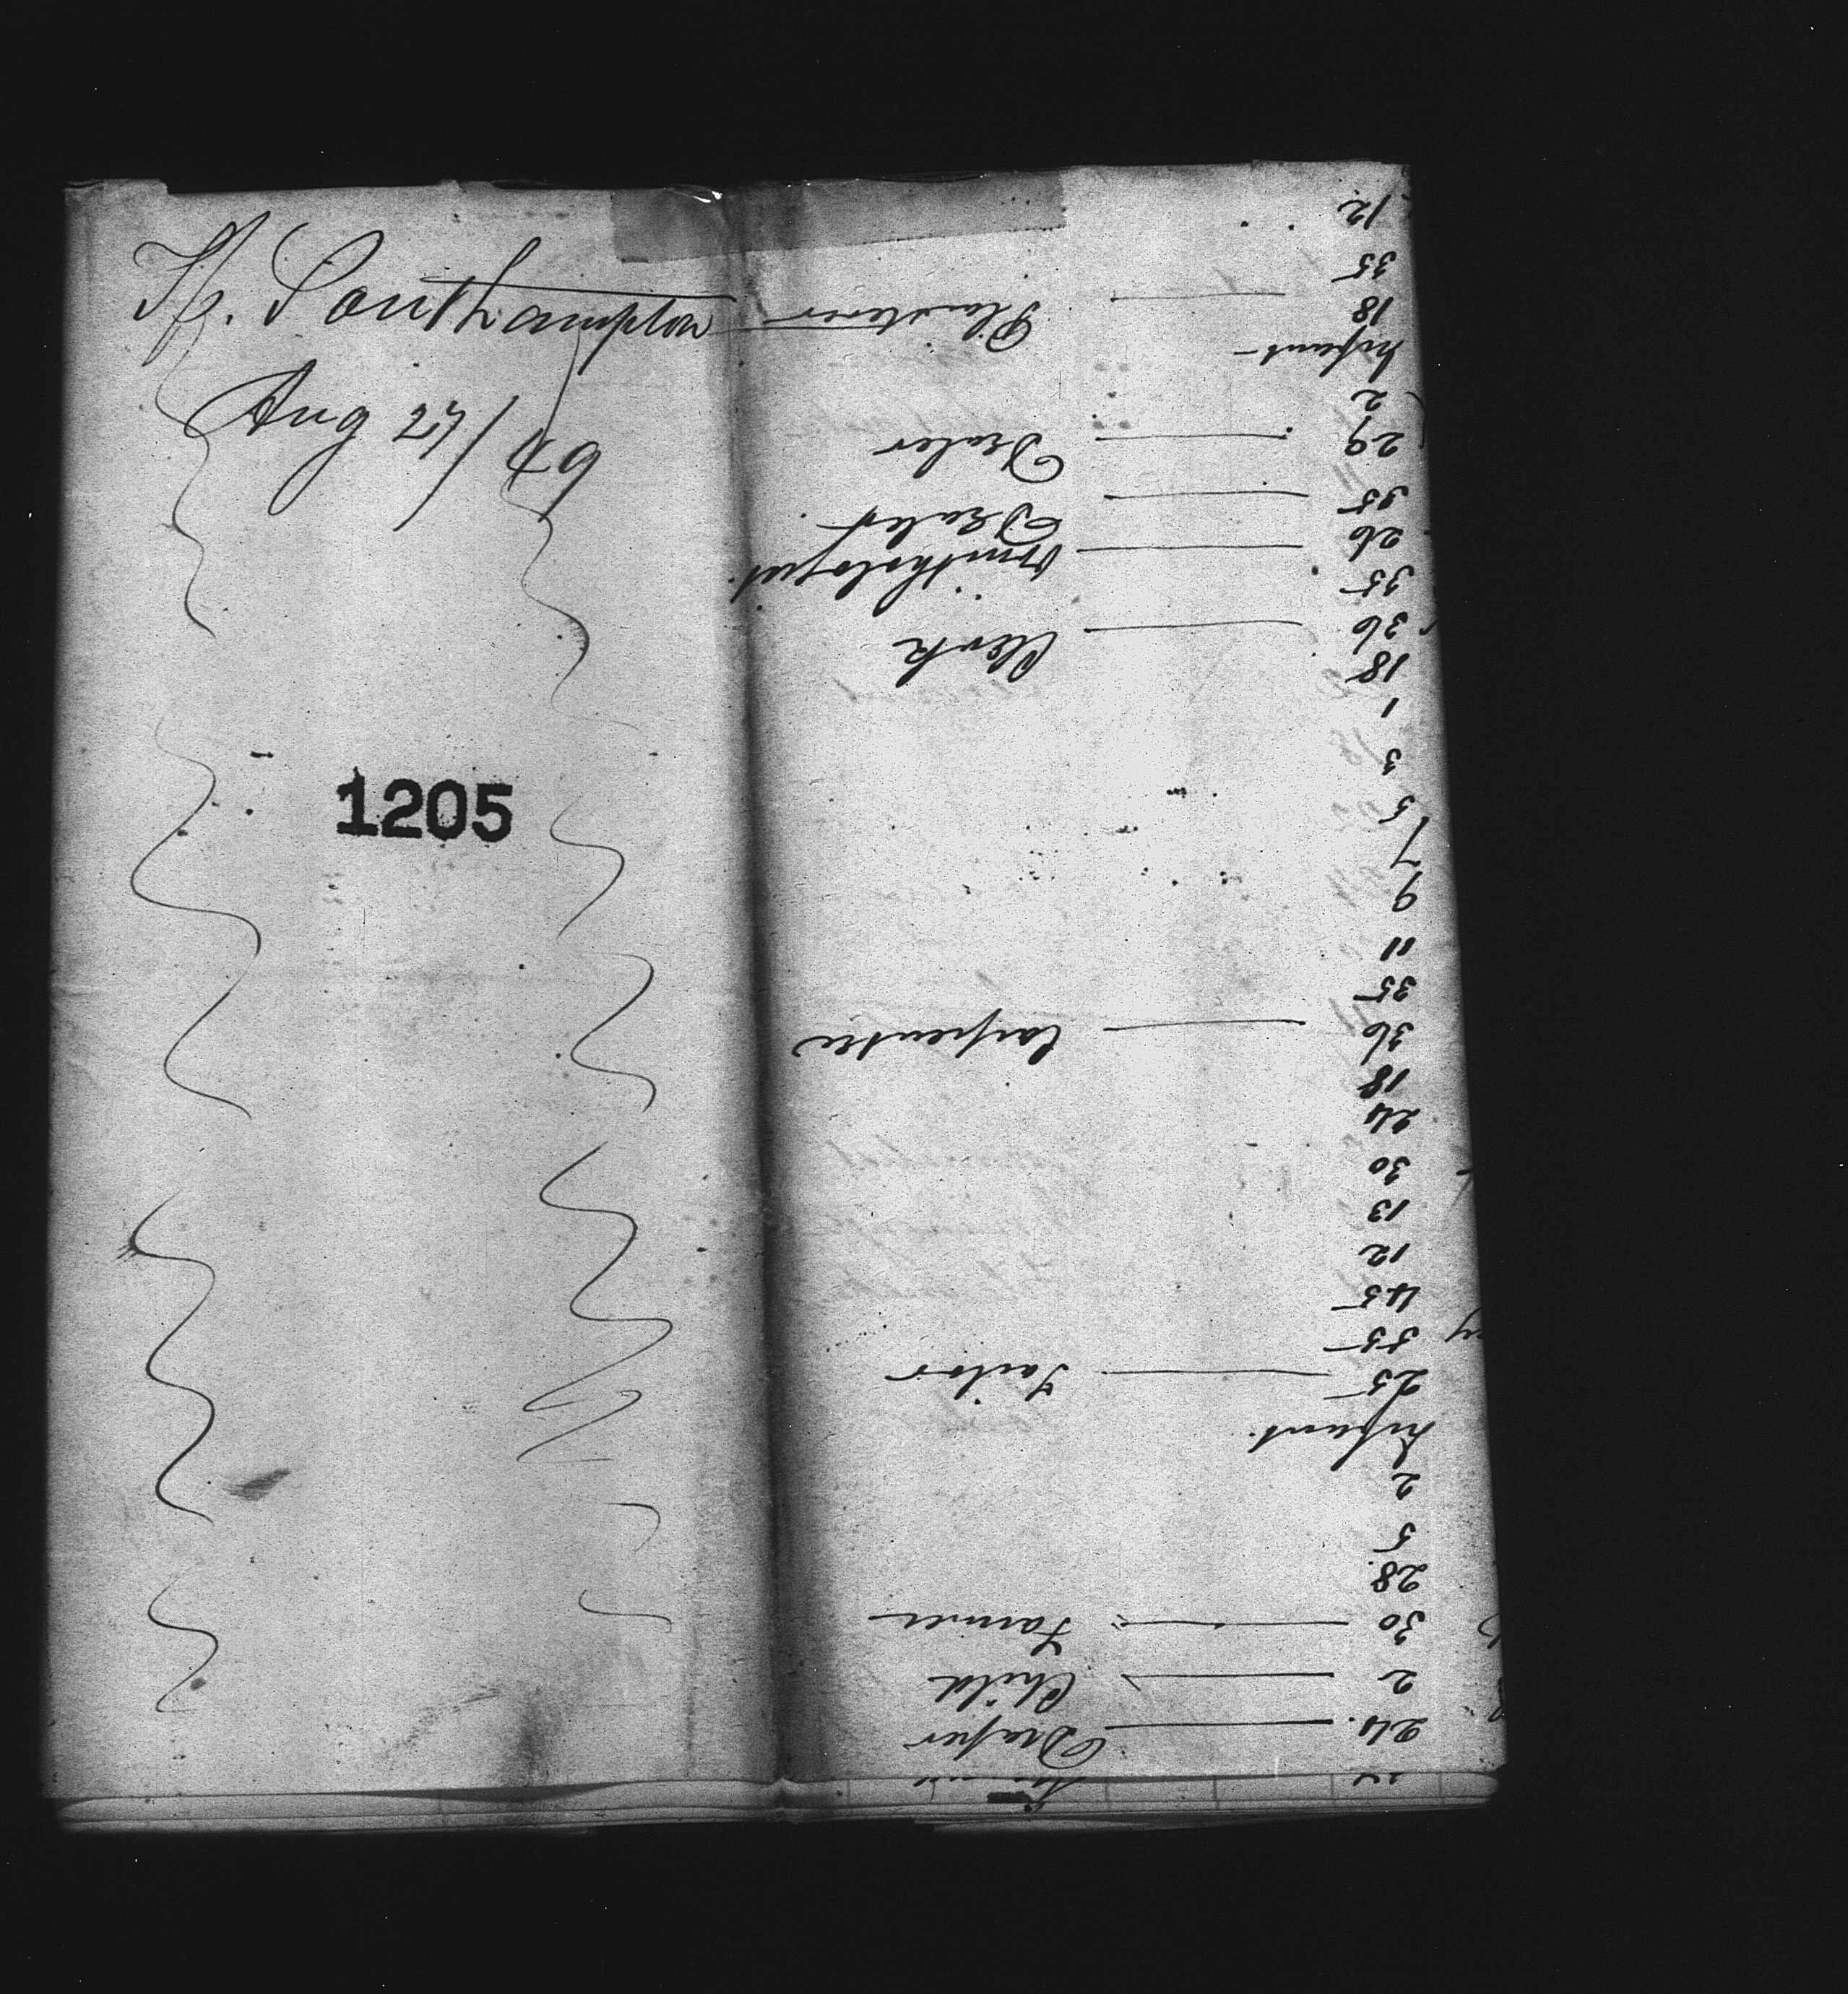 Southampton
Aug 27/49
1205
24 Draper
2 Child
30 Farmer
28
5
2
Infant
25 Tailor
55
45
12
13
30
24
18
36 Carpenter
35
11
9
7
5
3
1
18
36 Clerk
35
26 Ornithologist
35
29 Dealer
2
Infant
18 Plasterer
35
12